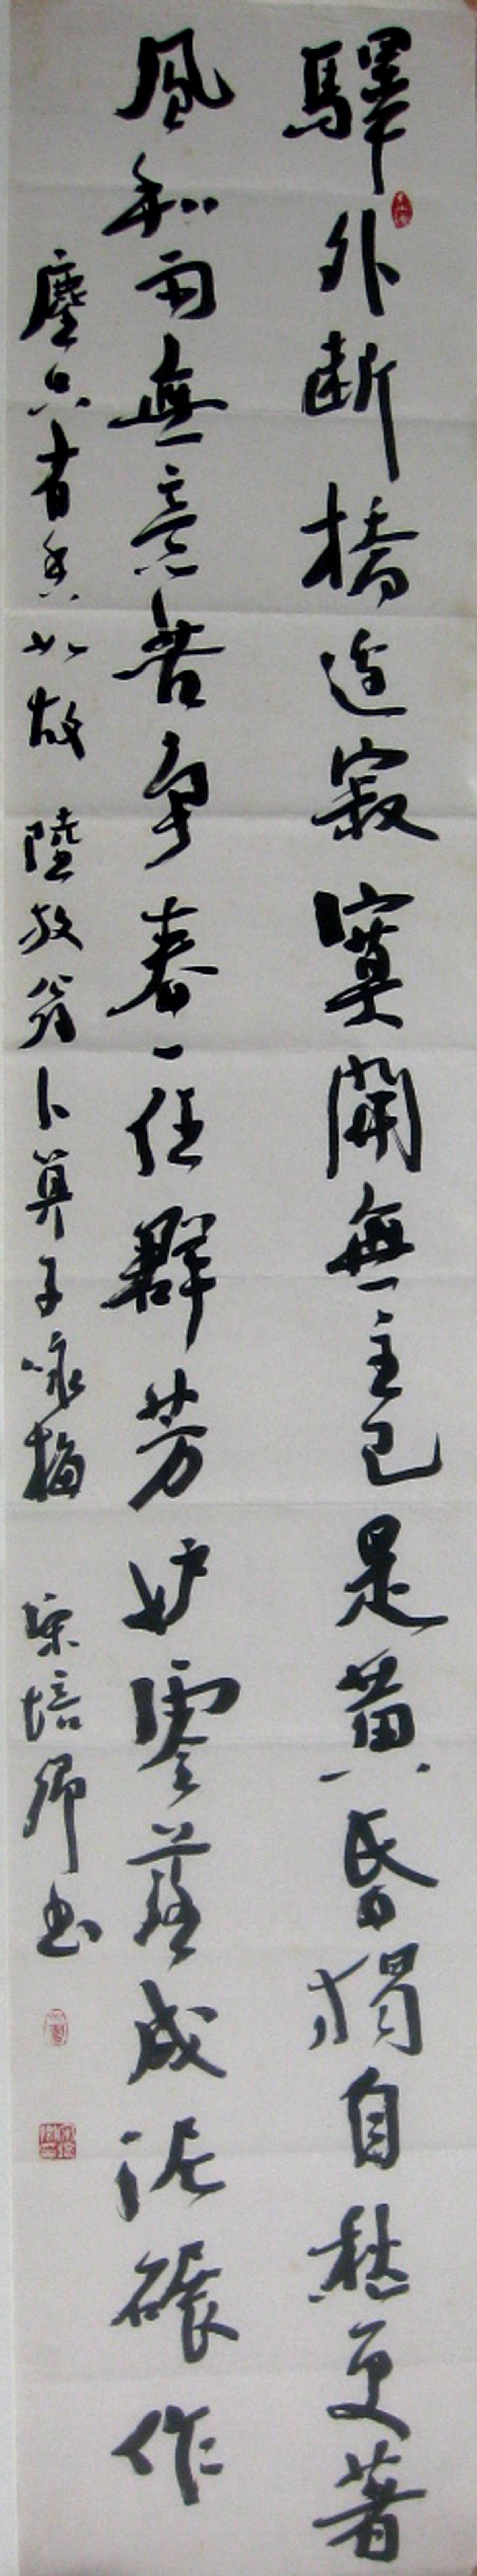 驛外斷橋邊寂寞開無主已是黃昏獨自愁更著
風和雨無意苦爭春一任群芳妒零落成泥碾作
塵只有香如故 陸放翁卜算子咏梅 宋培卿书